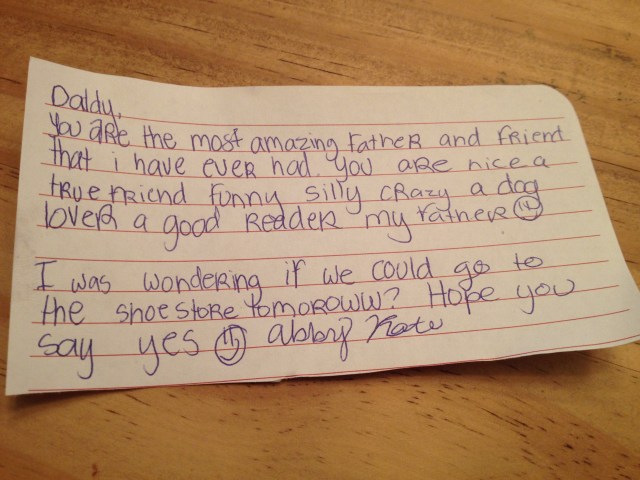 Daddy,
You are the most amazing father and friend
that i have ever had. you are nice a
true friend funny silly crazy a dog
lover a good reader my father
I was wondering if we could go to
the shoe store tomoroww? Hope you
say yes abby Kate